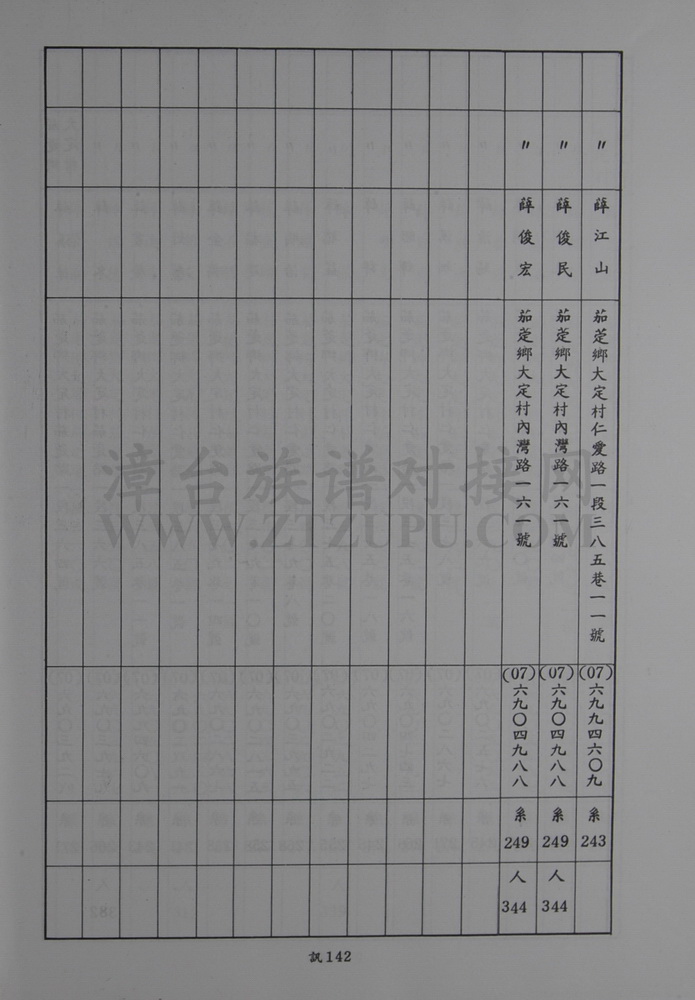 〃
薛江山
茄萣鄉大定村仁愛路一段三八五巷一一號
(07)六九九四六〇九
系243
〃
薛俊民
茄萣鄉大定村內灣路一六一號
(07)六九〇四九八八
系249
人344
〃
薛俊宏
茄萣鄉大定村內灣路一六一號
(07)六九〇四九八八
系249
人344
訊142
漳台族谱对接网
WWW.ZTZUPU.COM